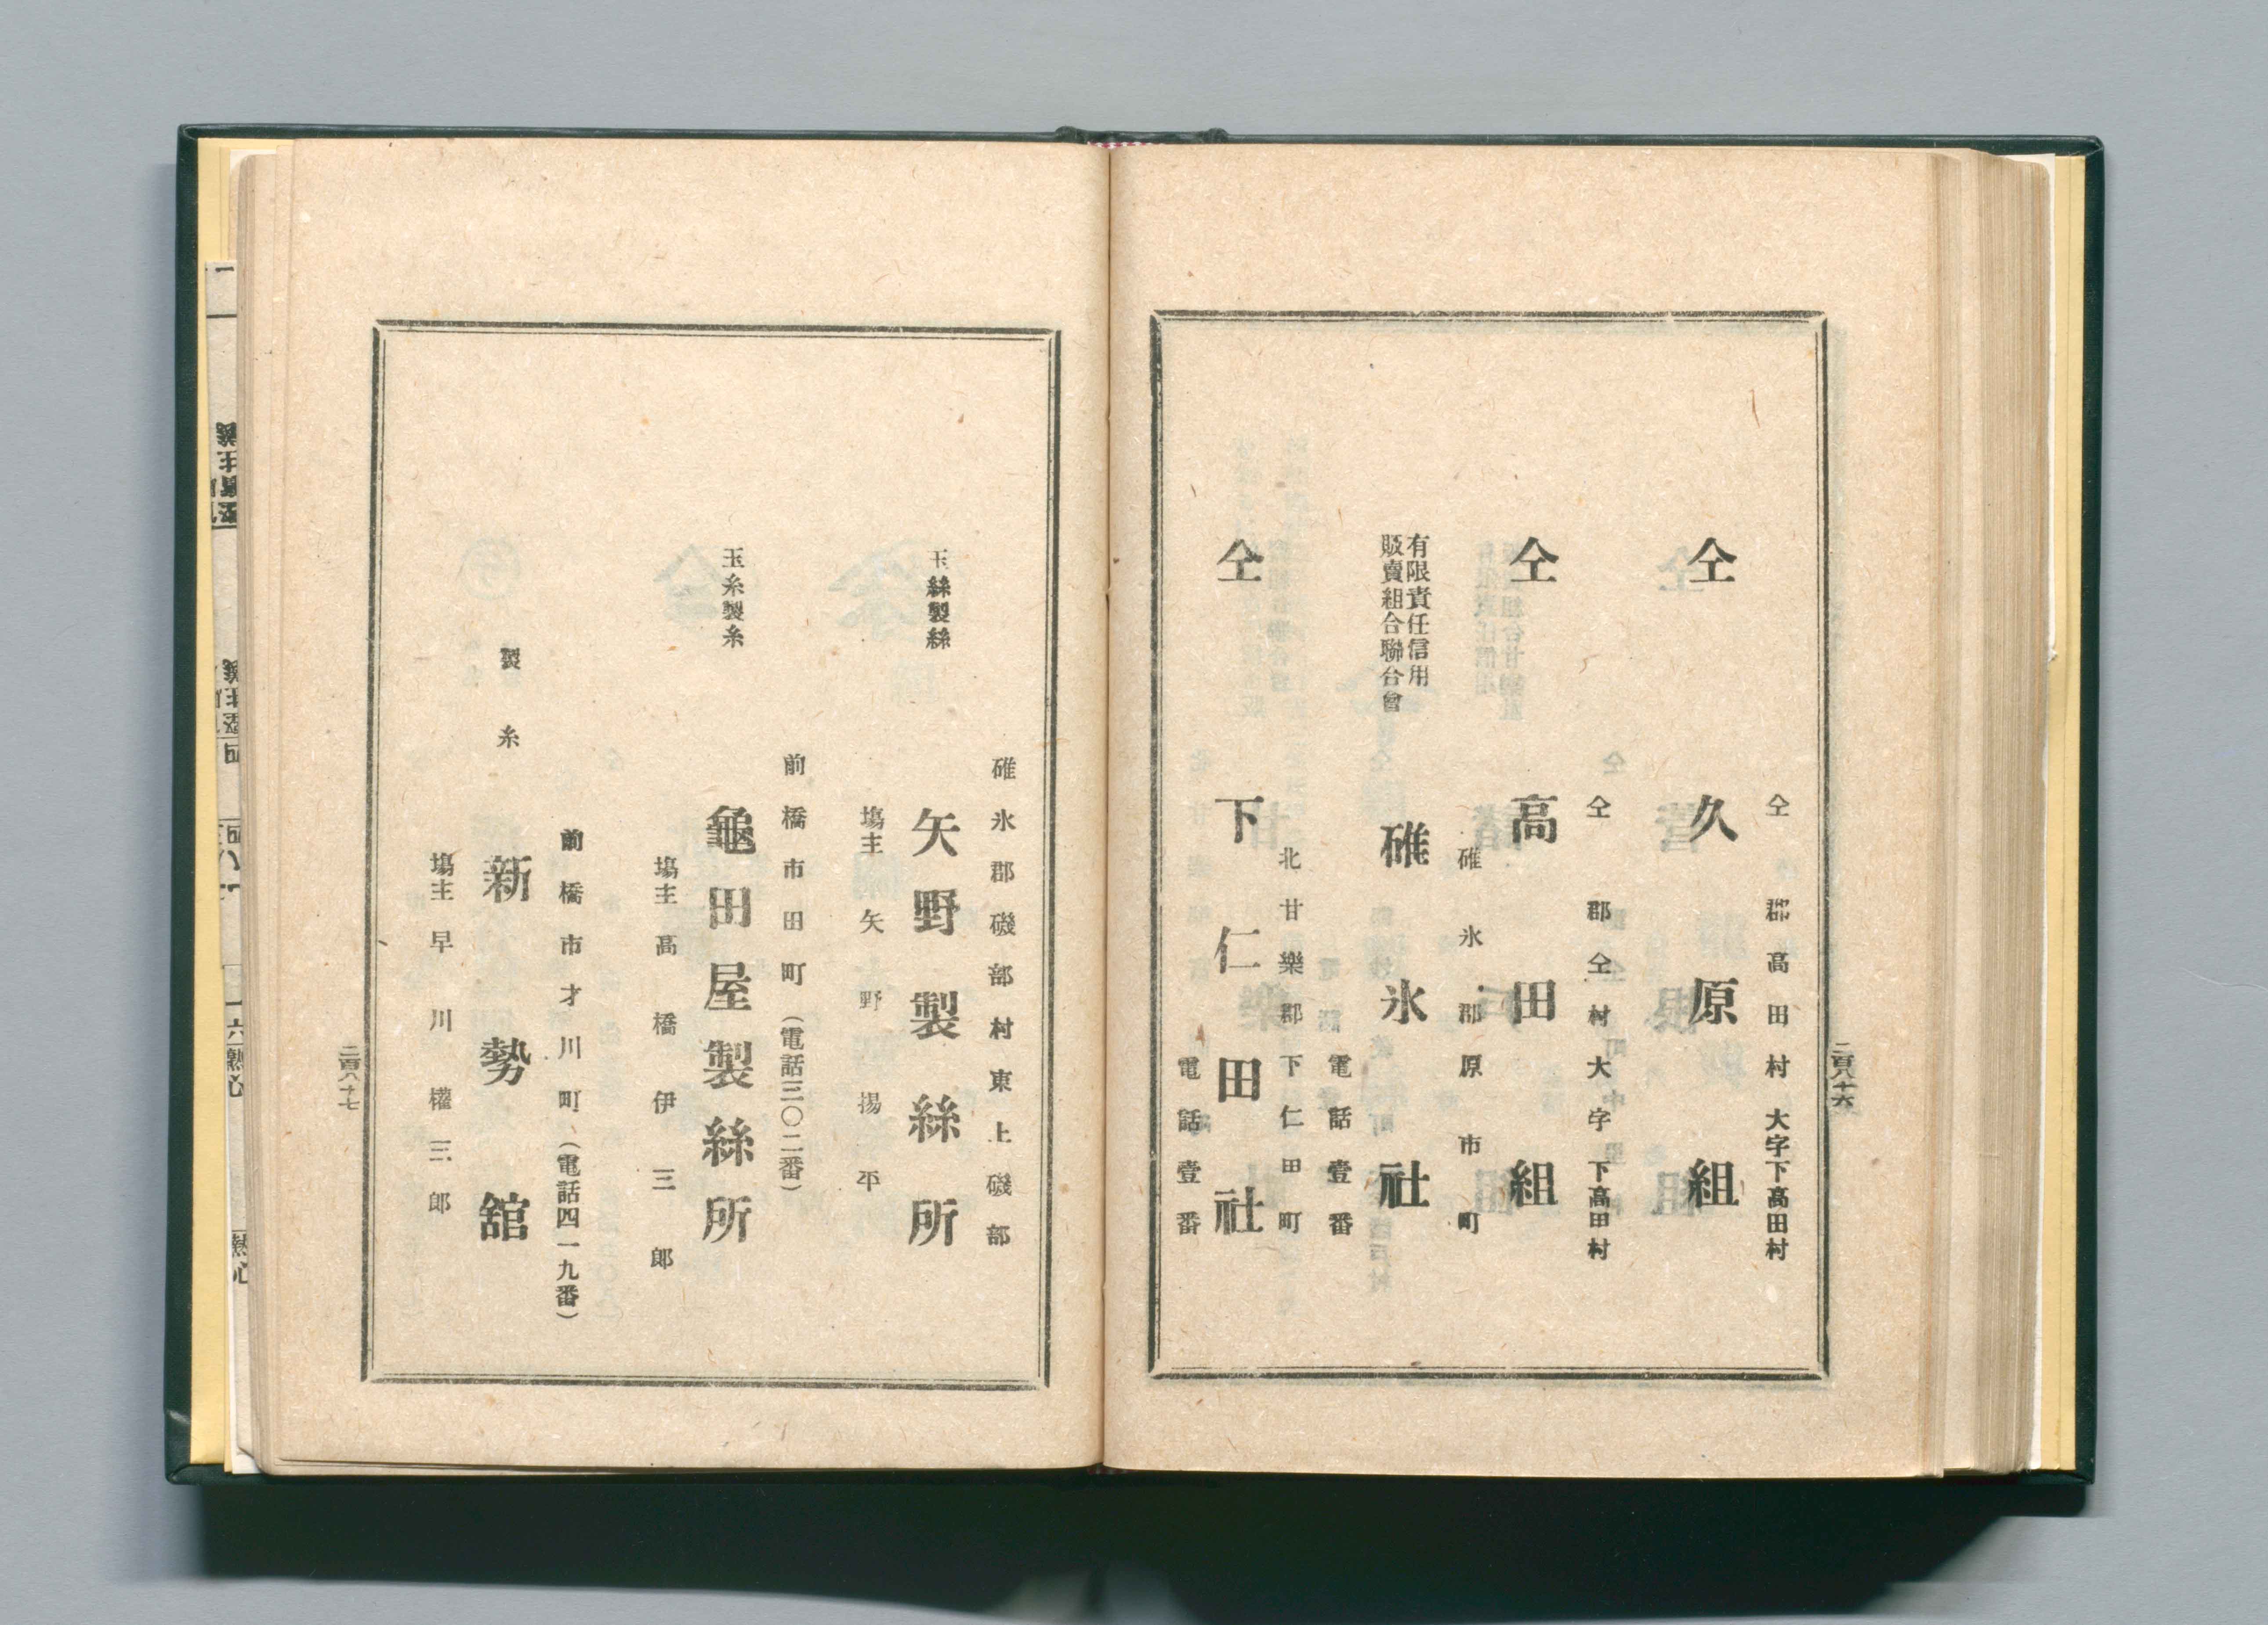 仝郡高田村大字下高田村
仝 久原組
仝郡仝村大字下高田村
仝 高田組
碓氷郡原市町
有限責任信用
販賣組合聯合會
碓氷社
電話壹番
北甘樂郡下仁田町
仝 下仁田社
電話壹番
二百八十六
碓氷郡磯部村東上磯部
玉絲製絲 矢野製絲所
塲主 矢野揚平
前橋市田町（電話三〇二番）
玉糸製糸 龜田屋製絲所
塲主 高橋伊三郎
前橋市才川町（電話四一九番）
製糸 新勢舘
塲主 早川權三郎
二百八十七